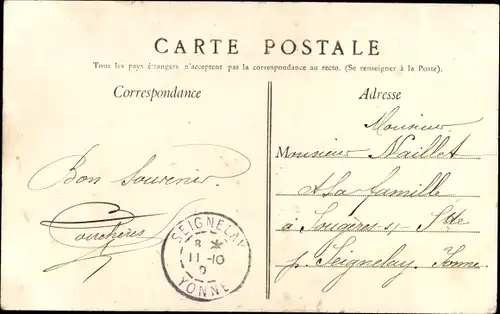 CARTE POSTALE
Tous les pays étrangers n'acceptent pas la correspondance au recto. (Se renseigner à la Poste).
Correspondance
Adresse
Bon Souvenir
Monsieur
Monsieur Naillet
& Sa famille
à Sougères s/
p. Seignelay. Yonne.
SEIGNELAY
8 *
11-10
9
YONNE